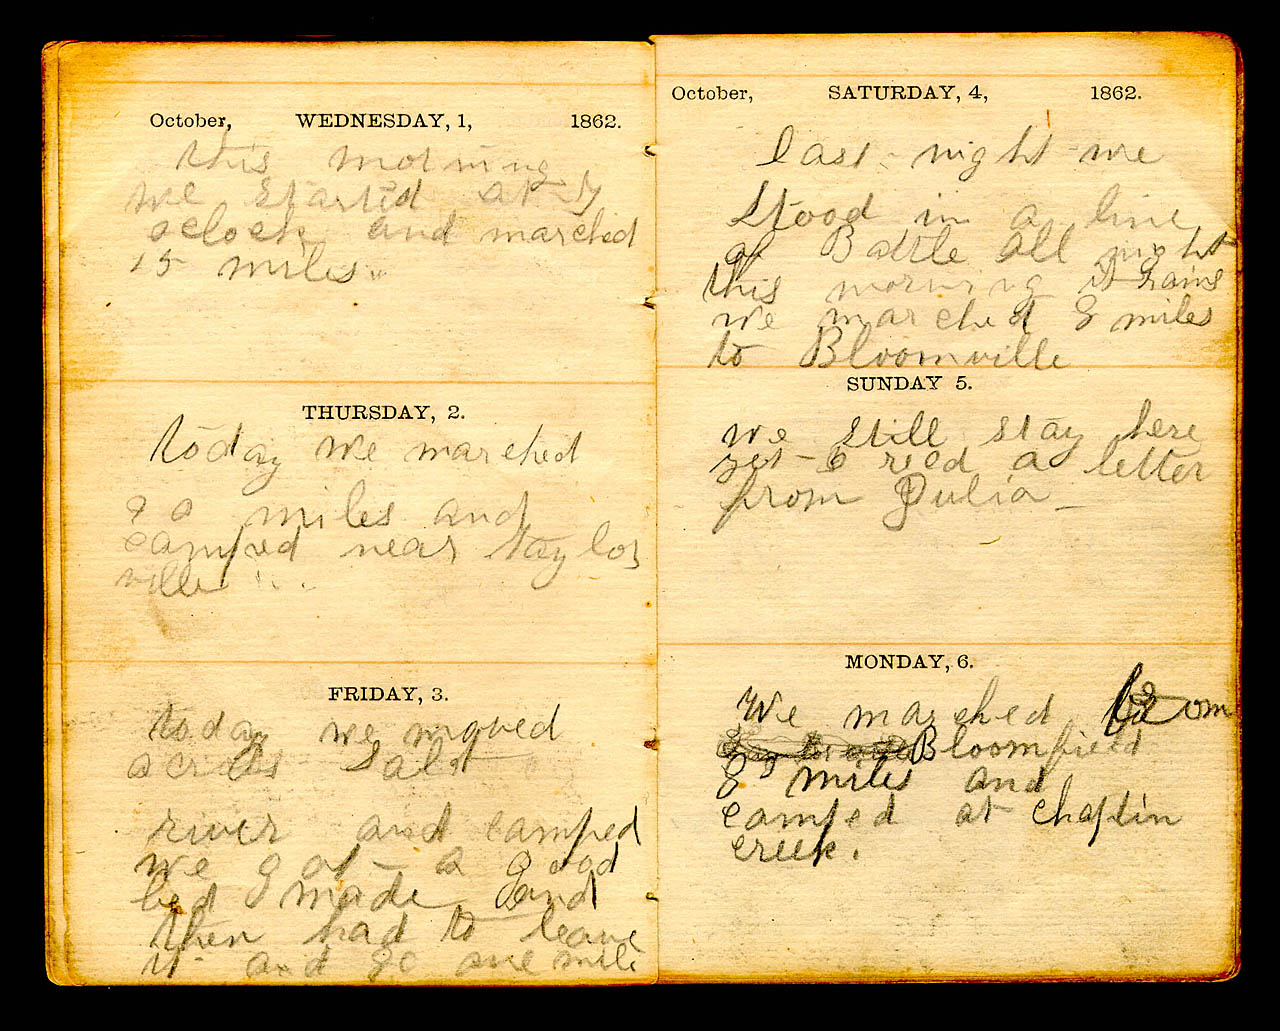 October, WEDNESDAY, 1, 1862.
this morning
we started at 7
oclock and marched
15 miles
THURSDAY, 2.
today we marched
miles and
camped near Taylor
ville
FRIDAY, 3.
today we moved
across Salt
river and camped
we got a good
bed made and
then had to leave
it and go one mile
October, SATURDAY, 4, 1862.
last night we
stood in a line
of Battle all night
this morning it rains
we marched 8 miles
to Bloomville
SUNDAY 5.
we still stay here
yet I recd a letter
from Julia
MONDAY, 6.
We marched from
Bloomfield
8 miles and
camped at Chaplin
creek.